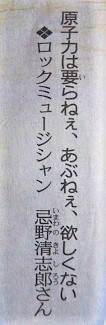 原子力は要らねぇ、あぶねぇ、欲しくない
❖ロックミュージシャン 忌野清志郎さん